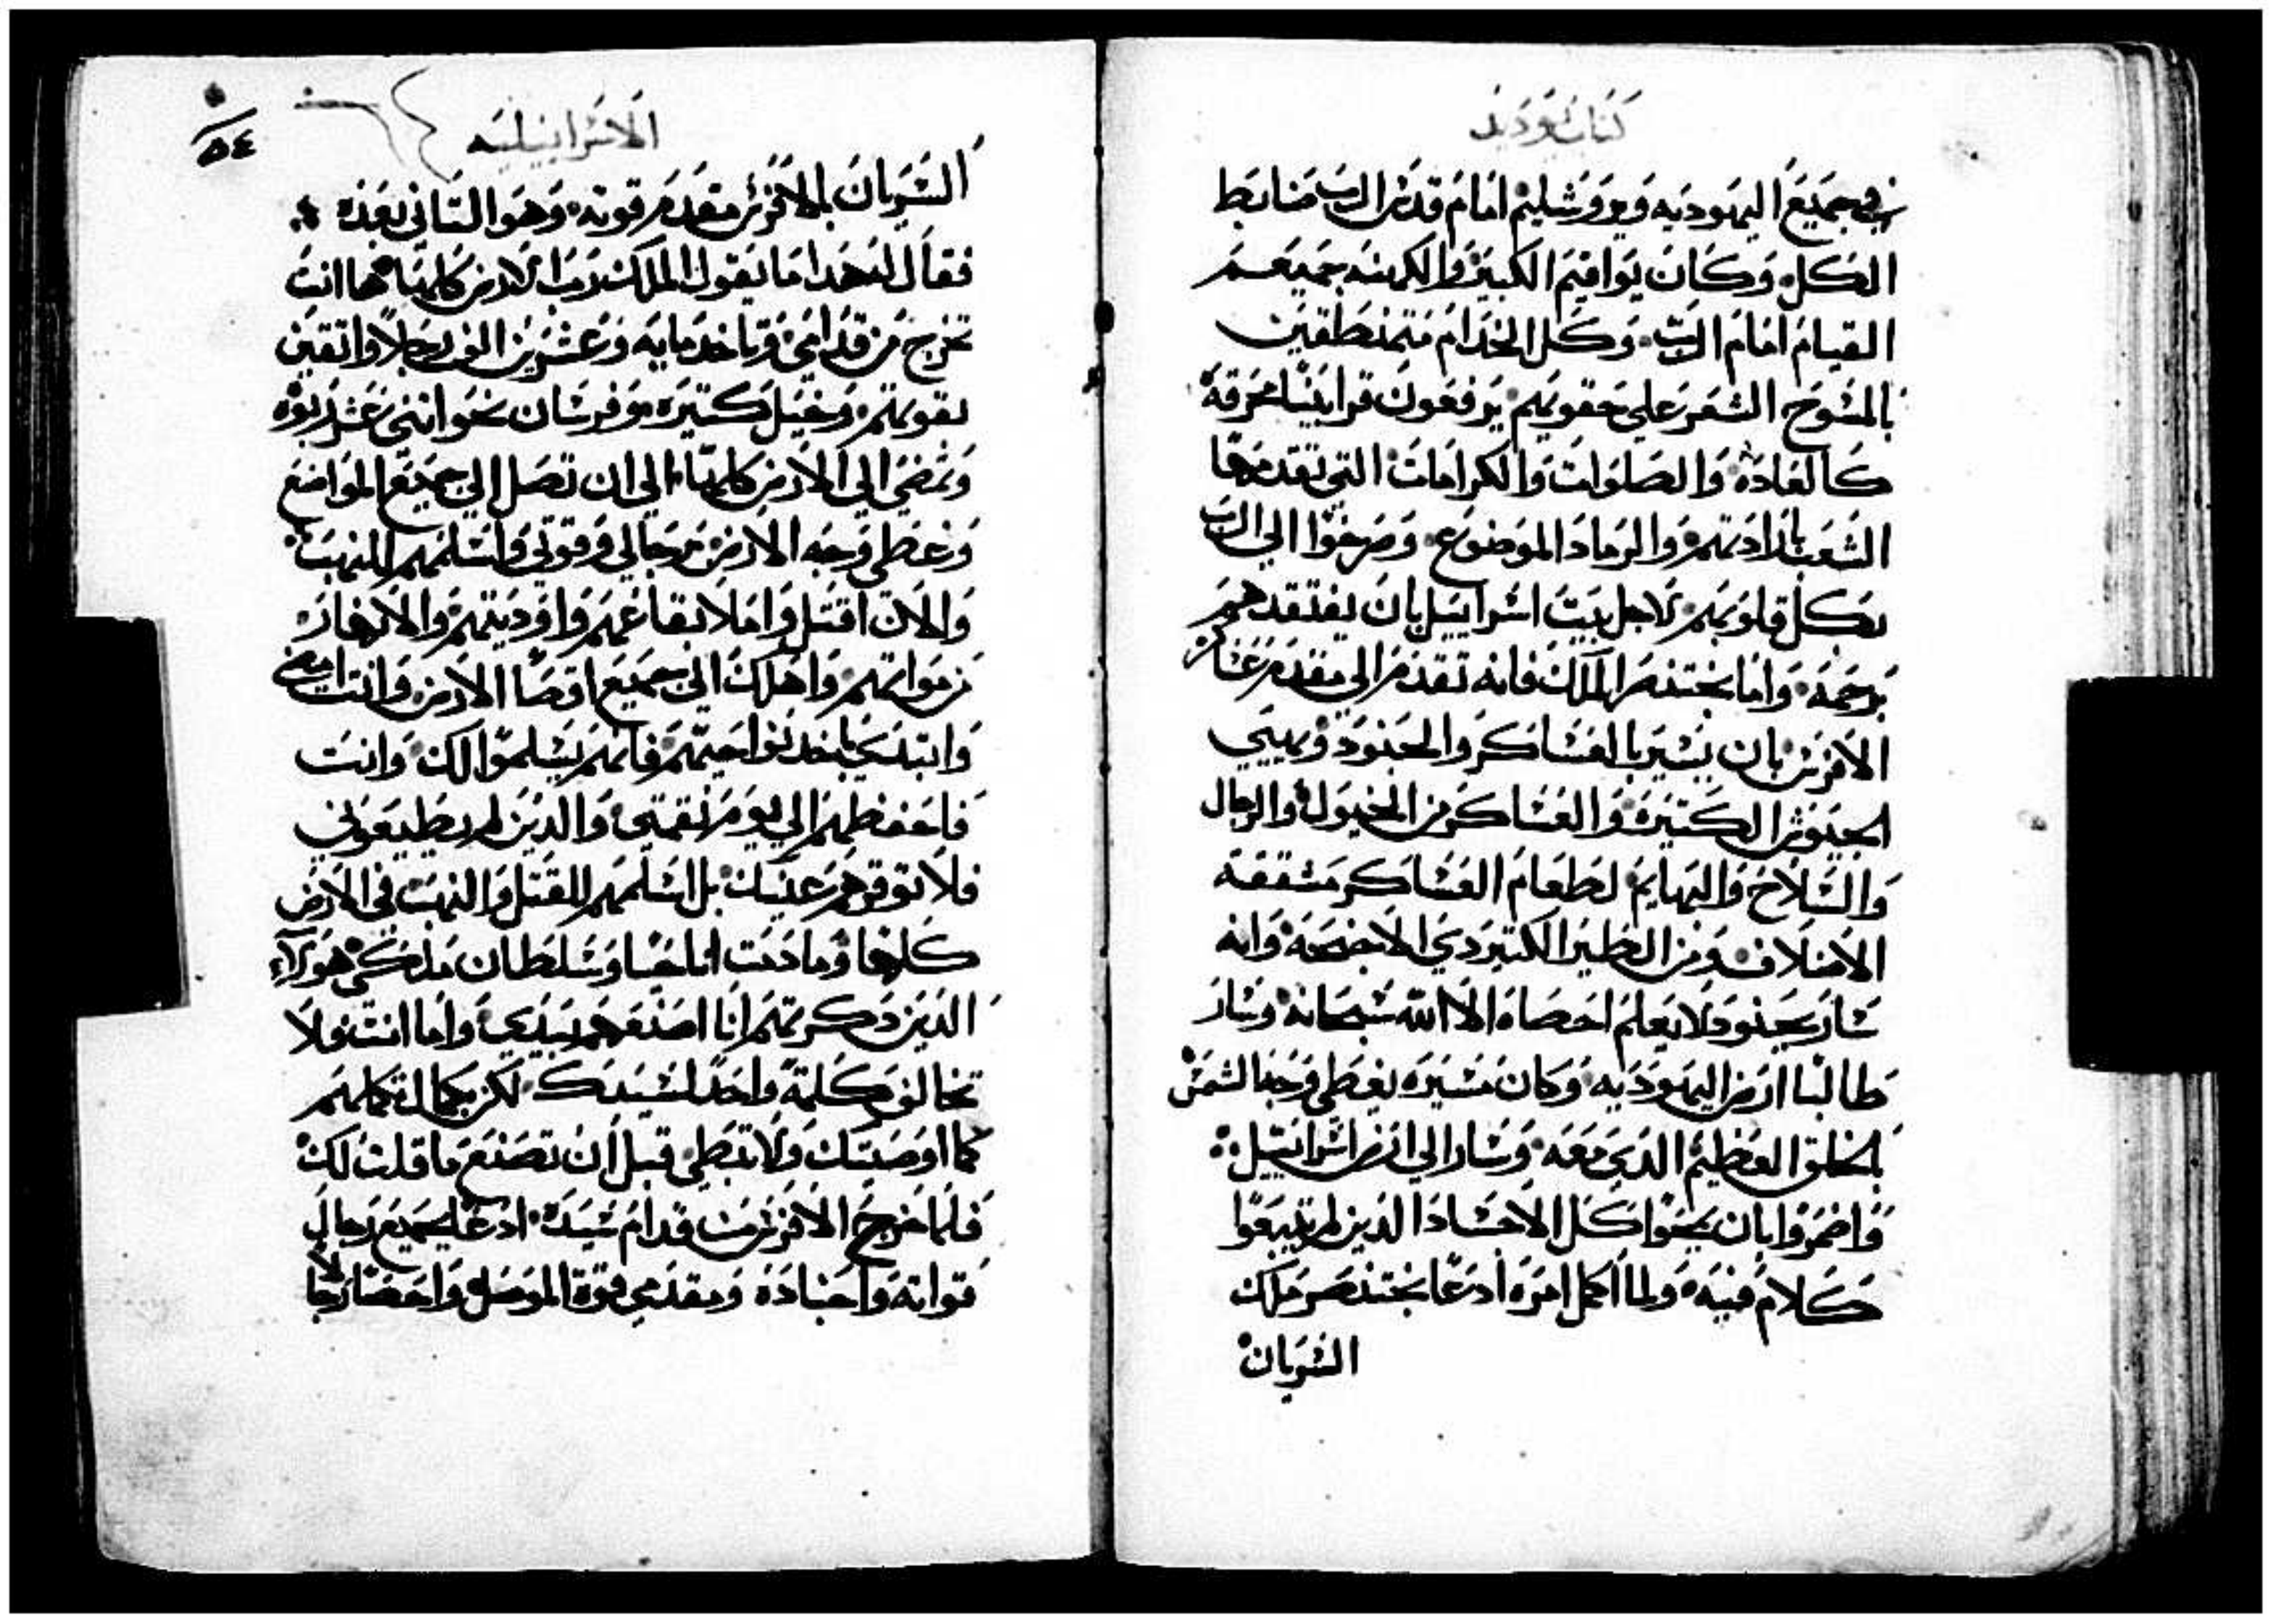 كتاب يوديت
في جميع اليهوديه ويروشليم امام قدس الرب ضابط
الكل وكان يواقيم الكبير والكهنه جميعهم
القيام امام الرب وكل الخدام متمنطقين
بالمسوح الشعر علي حقويهم يرفعون قرابينا محرقة
كالعادة والصلوات والكرامات التي تقدمها
الشعب بارادتهم والرماد الموضوع وصرخوا الي الرب
بكل قلوبهم لاجل بيت اسراييل بان يفتقدهم
برحمة واما بختنصر الملك فانه تقدم الي مقدم عساكر
الافرنس بان يسير بالعساكر والجنود ويهيي
الجيوش الكتيرة والعساكر من الخيول والرجال
والسلاح والبهايم لطعام العساكر
الاصلاف ومن الطير الكتير دي الاجنحة وانه
سار بجنود لا يعلم احصاه الا الله سبحانه وسار
طالبا ارض اليهوديه وكان مسيره يغطي وجه الشمس
بالخلق العظيم الدي معه وسار الي ارض اسراييل
واضمروا بان يمحوا كل الاجساد الدين لم يتبعوا
كلام فيه ولما اكمل امره ادعا بختنصر ملك
السريان
الاسراييليه
٥٤
السريان بالافرنس مقدم قوته وهو التاني بعده
فقال له هدا ما يقول الملك رب الارض كلها ها انت
تخرج من قدامي وتاخد مايه وعشرين الف رجلا واتقين
بقوتهم وخيل كتيره وفرسان نحو اتني عشر ربوه
وتمضي الي الارض كلها الي ان تصل الي جميع المواضع
وغطي وجه الارض من رجالي وقوتي واسلمهم للنهب
والان اقتل واملا بقاعهم واوديتهم والانهار
من مواتهم واهلك الي جميع اقصا الارض وانت امضي
وابتدي باخد نواحيهم فانهم يسلموا لك وانت
فاحفظهم الي يوم نقمتي والدين لم يطيعوني
فلا توقرهم عنيك بل اسلمهم للقتل والنهب في الارض
كلها وما دمت انا حيا وسلطان ملكي هولاء
الدين دكرتهم انا اصنعهم بيدي واما انت فلا
تخالف كلمة واحدا لسيدك لكن بكمال تكملهم
كما اوصيتك ولا تبطي قبل ان تصنع ما قلت لك
فلما خرج الافرنس من قدام سيده ادعا بجميع رجال
قواته واجناده ومقدمي قوة الموصل واحصا رجالا